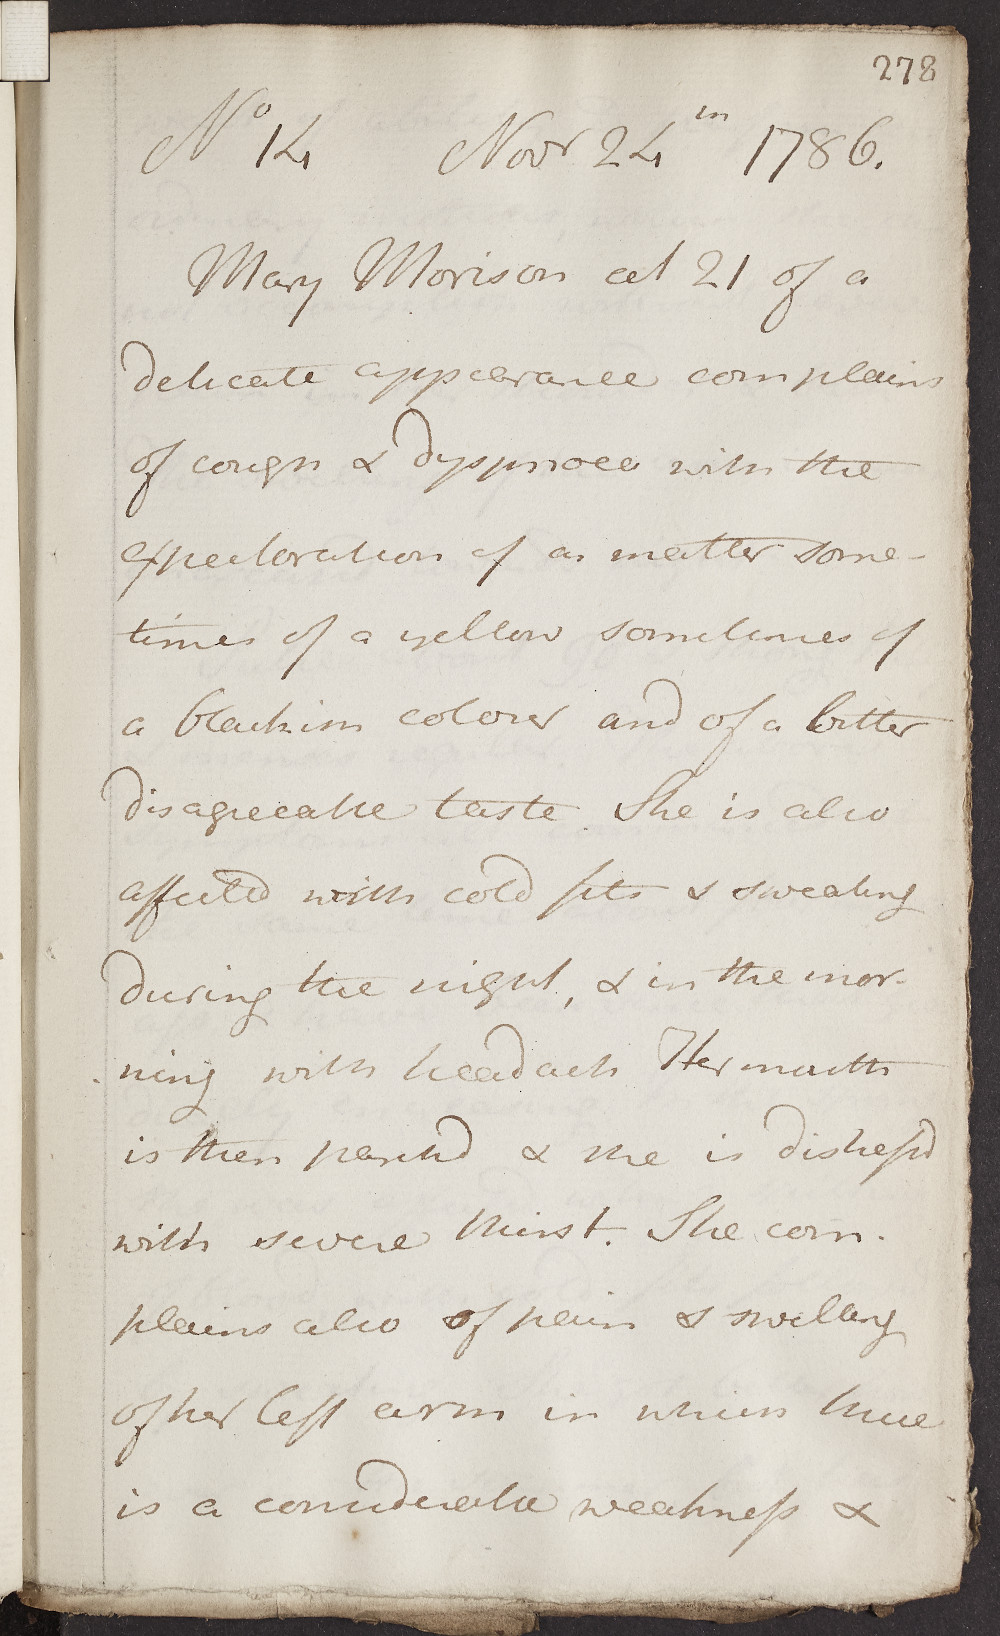 278
No 14 Novr 24th 1786.
Mary Morison aet 21 of a
delicate appearance complains
of cough & dyspnoea with the
expectoration of a matter some-
times of a yellow sometimes of
a blackish colour and of a bitter
disagreeable taste. She is also
affected with cold fits & sweating
during the night, & in the mor-
ning with headach Her mouth
is then parched & she is distress'd
with severe thirst. She com-
plains also of pain & swelling
of her left arm in which there
is a considerable weakness &